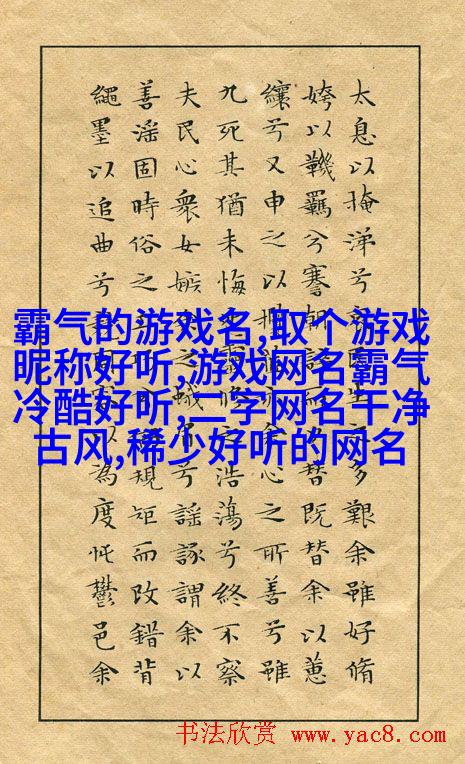 霸气的游戏名,取个游戏
昵称好听,游戏网名霸气
冷酷好听,二字网名干净
古风,稀少好听的网名
太息以掩涕兮生之多艱余雖好脩
姱以鞿羈兮謇朝而替既替余以蕙
纕兮又申之以余心之所善兮雖
九死其猶未悔之浩蕩兮終不察
夫民心衆女嫉之蛾兮謠諑謂余以
善淫固時俗之規矩而改錯背
繩墨以追曲兮以為度忳鬱邑余
书法欣赏 www.yac8.com